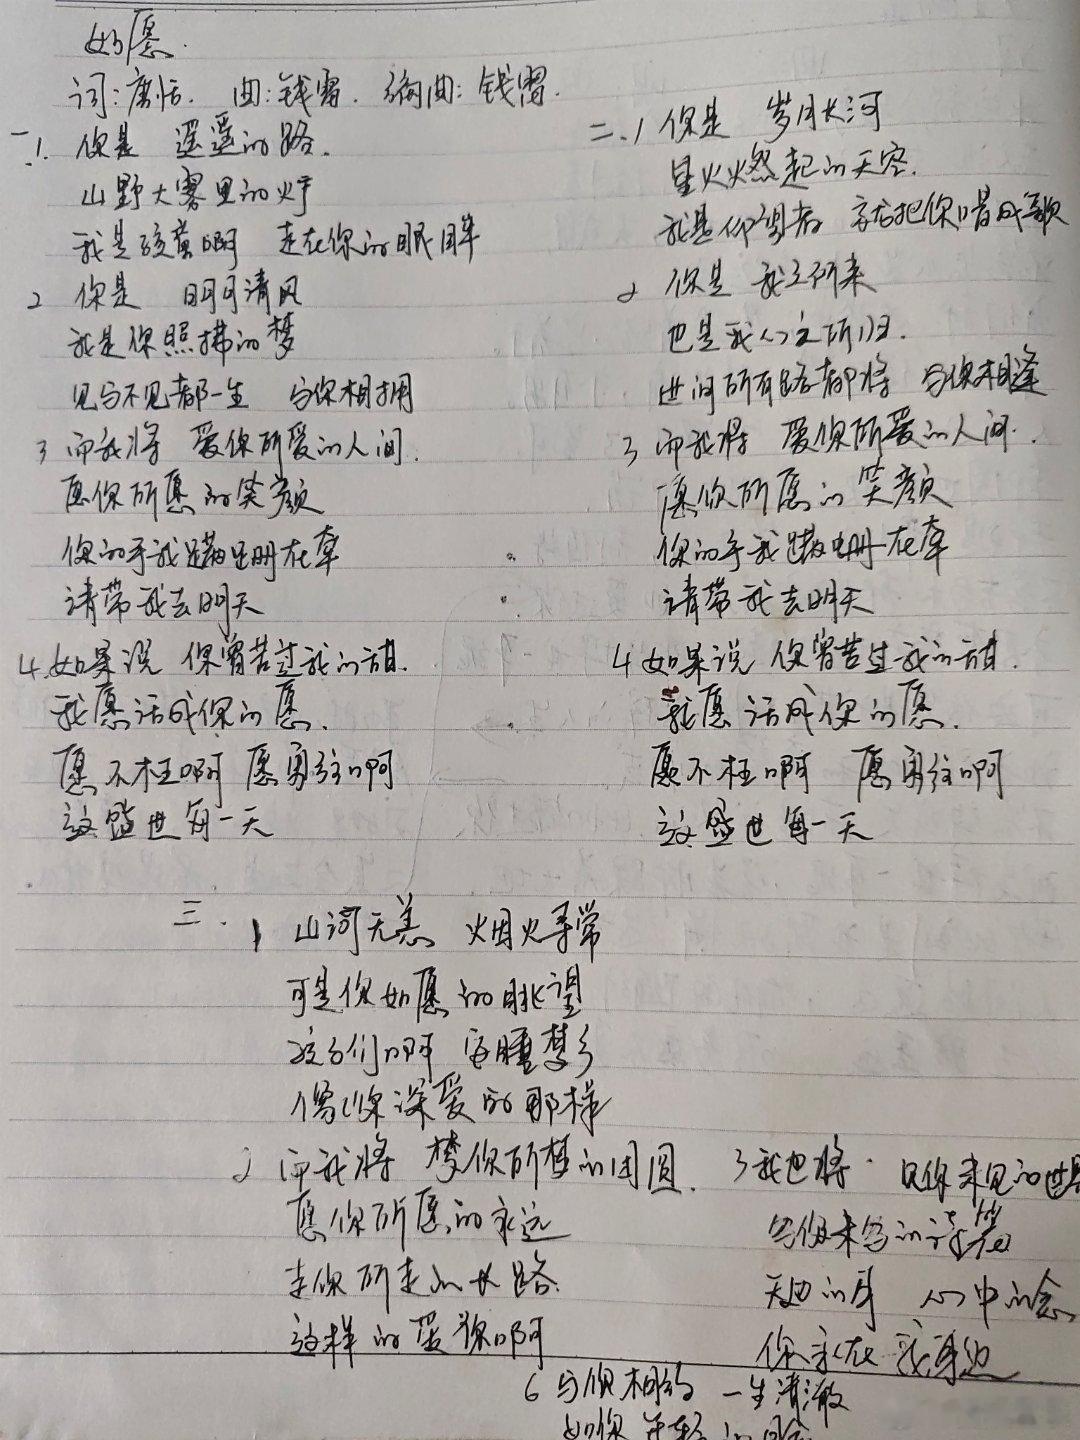 如愿.
词:唐恬. 曲:钱雷. 编曲:钱雷.
一.1. 你是 遥遥的路.
山野大雾里的灯
我是孩童啊 走在你的眼眸
2 你是 明月清风
我是你照拂的梦
见与不见都一生 与你相拥
3 而我将 爱你所爱的人间.
愿你所愿的笑颜
你的手我蹒跚在牵
请带我去明天
4.如果说 你曾苦过我的甜.
我愿活成你的愿.
愿不枉啊 愿勇往啊
这盛世每一天
二.1 你是 岁月长河
星火燃起的天空.
我是仰望者 就把你唱成歌
2 你是 我之所来
也是我心之所归.
世间所有路都将 与你相逢
3 而我将 爱你所爱的人间.
愿你所愿的笑颜
你的手我蹒跚在牵
请带我去明天
4 如果说 你曾苦过我的甜.
我愿活成你的愿.
愿不枉啊 愿勇往啊
这盛世每一天
三. 1 山河无恙 烟火寻常
可是你如愿的眺望
孩子们啊 安睡梦乡
像你深爱的那样
2 而我将 梦你所梦的团圆.
愿你所愿的永远
走你所走的长路
这样的爱你啊
3 我也将 见你未见的世界
写你未写的诗篇
天边的月 心中的念
你永在我身边
6 与你相约 一生清澈
如你年轻的脸